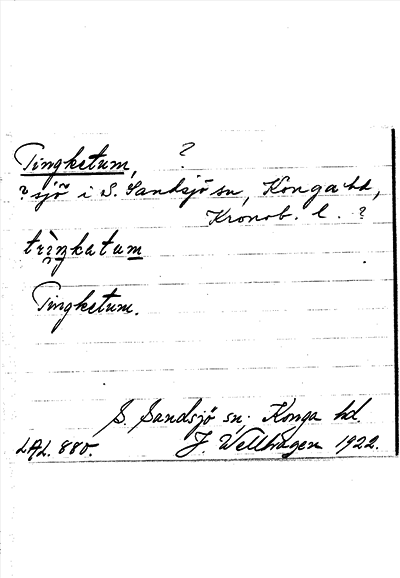 Tingketum, ?
? sjö i S. Sandsjö sn, Konga hd,
Kronob. l. ?
trìnkatum
Tingketum.
S. Sandsjö sn. Konga hd.
LAL. 880. J. Wellhagen 1922.